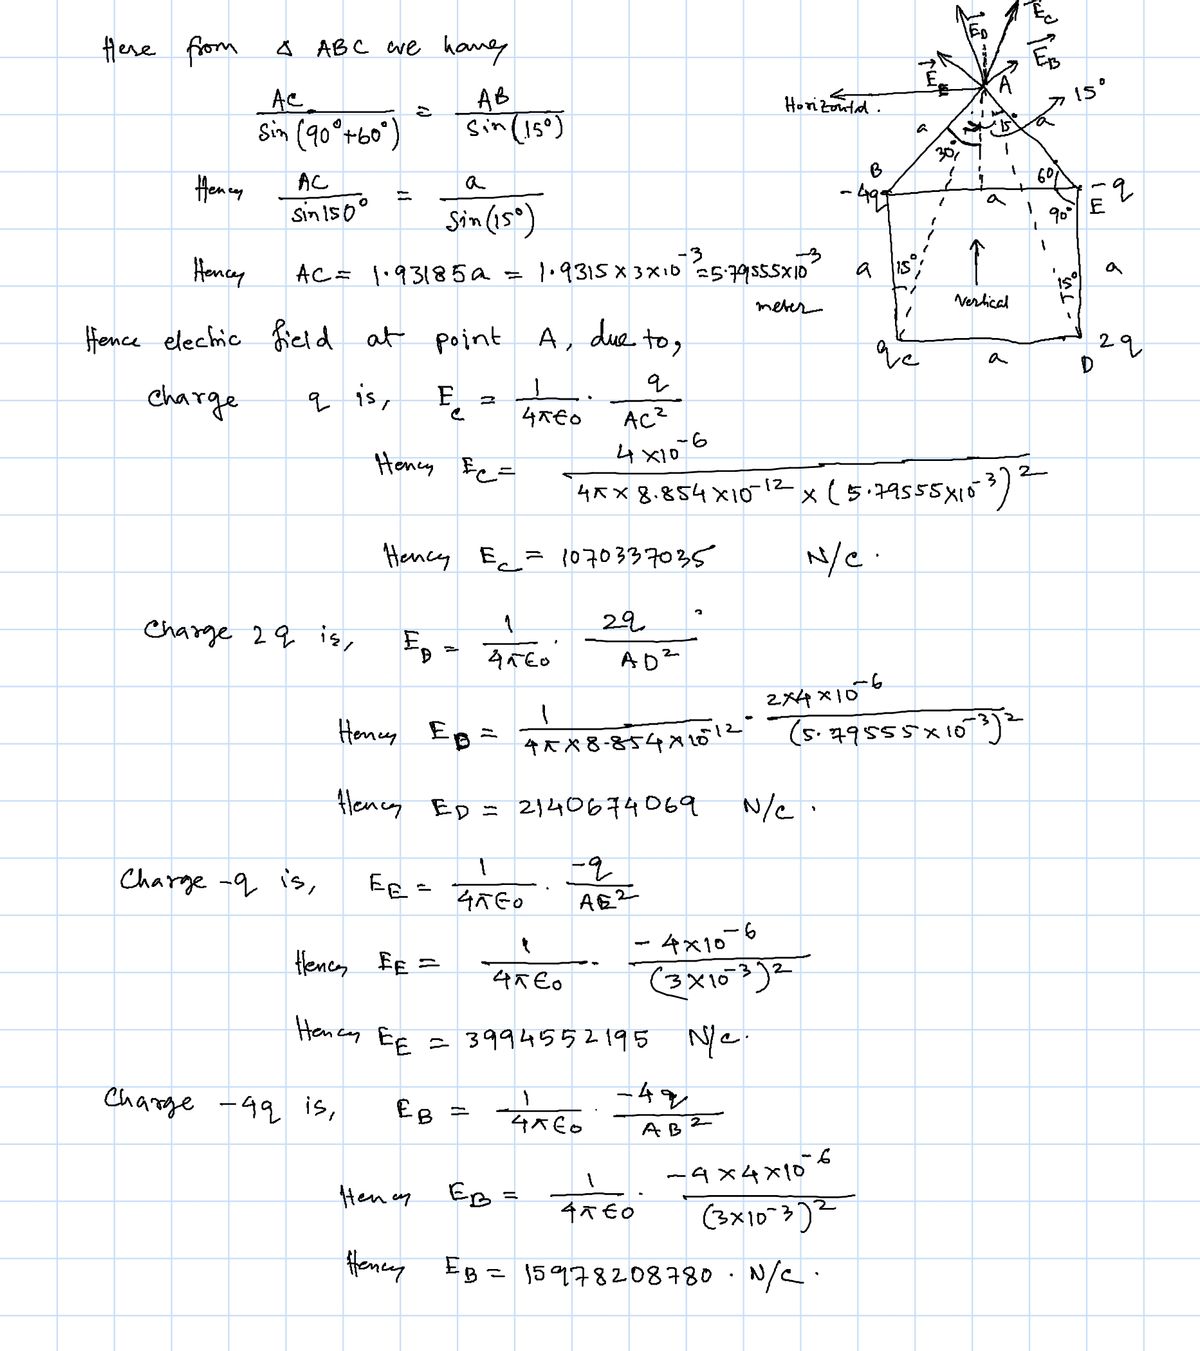 Here from Δ ABC we have,
AC / Sin (90°+60°) = AB / Sin (15°)
Hence, AC / Sin150° = a / Sin(15°)
Hence, AC = 1.93185a = 1.9315 × 3×10⁻³ = 5.79555×10⁻³ meter
Hence electric field at point A, due to,
Charge q is, E_C = 1/4πϵ0 · q/AC²
Hence, E_C = 4×10⁻⁶ / 4π × 8.854×10⁻¹² × (5.79555×10⁻³)²
Hence, E_C = 1070337035 N/C.
Charge 2q is, E_D = 1/4πϵ0 · 2q/AD²
Hence, E_D = 1/4π×8.854×10⁻¹² · 2×4×10⁻⁶/(5.79555×10⁻³)²
Hence, E_D = 2140674069 N/C.
Charge -q is, E_E = 1/4πϵ0 · -q/AE²
Hence, E_E = 1/4πϵ0 · -4×10⁻⁶/(3×10⁻³)²
Hence, E_E = 3994552195 N/C.
Charge -4q is, E_B = 1/4πϵ0 · -4q/AB²
Hence, E_B = 1/4πϵ0 · -4×4×10⁻⁶/(3×10⁻³)²
Hence, E_B = 15978208780. N/C.
E_D E_C
E_E E_B
A
Horizontal.
15°
a 15° a
30°
B 60°
-4q a -q
90° E
a 15° 15° a
Vertical
q C a D 2q